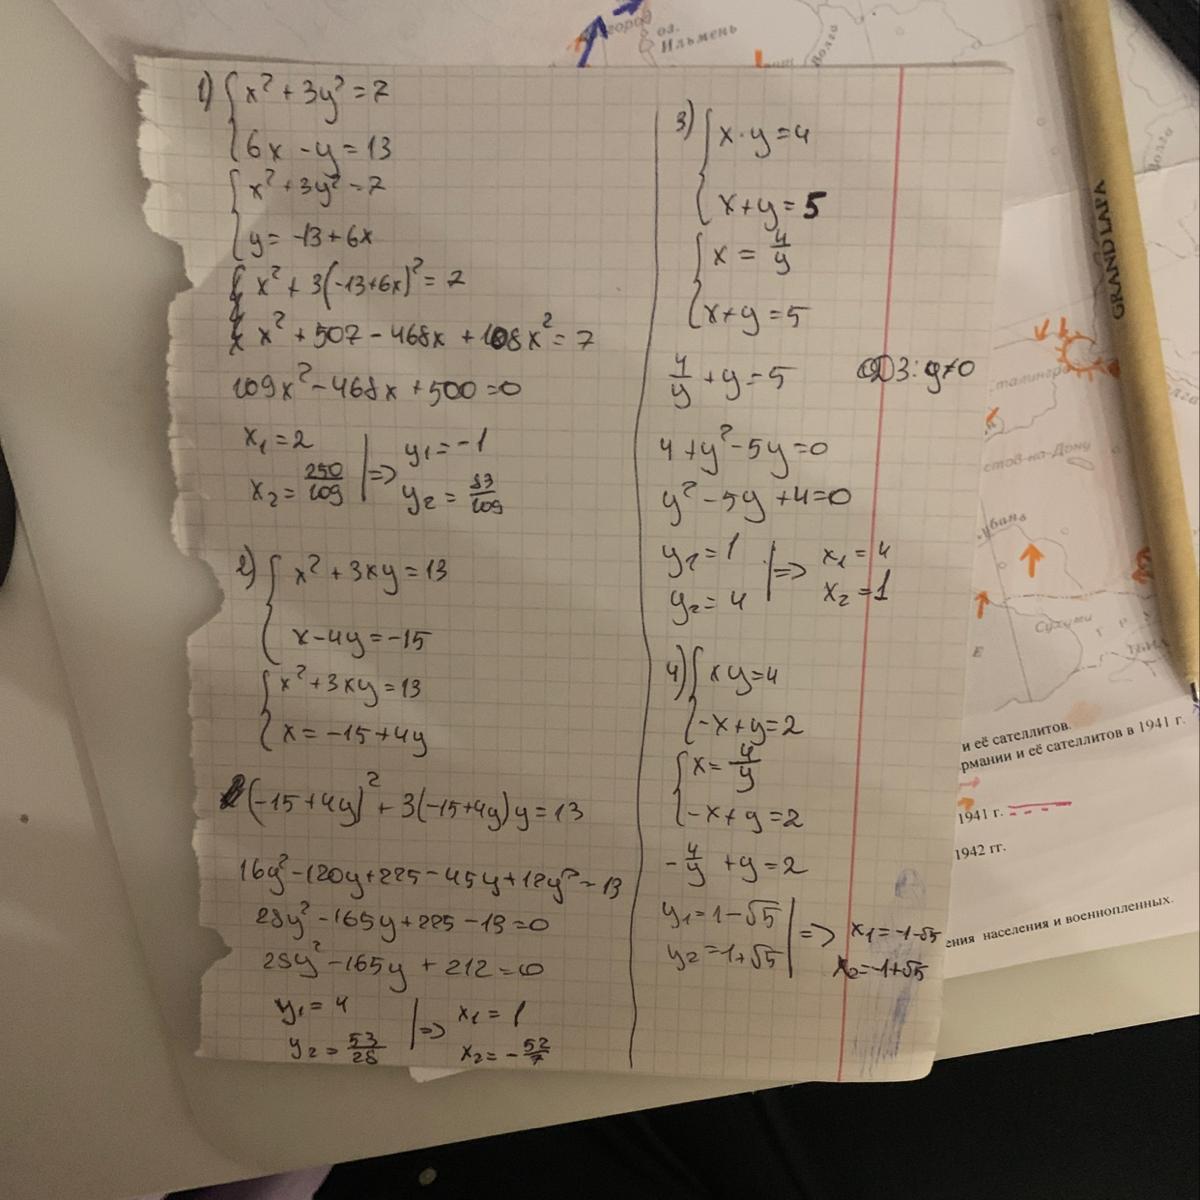 1) { x² + 3y² = 7
6x - y = 13
{ x² + 3y² = 7
y = -13 + 6x
x² + 3(-13+6x)² = 7
x² + 507 - 468x + 108x² = 7
109x² - 468x + 500 = 0
x₁ = 2 | => y₁ = -1
x₂ = 250/109 | y₂ = 83/109
2) { x² + 3xy = 13
x - 4y = -15
{ x² + 3xy = 13
x = -15 + 4y
(-15 + 4y)² + 3(-15+4y)y = 13
16y² - 120y + 225 - 45y + 12y² = 13
28y² - 165y + 225 - 13 = 0
28y² - 165y + 212 = 0
y₁ = 4 | => x₁ = 1
y₂ = 53/28 | x₂ = - 52/7
3) { x · y = 4
x + y = 5
{ x = 4/y
x + y = 5
4/y + y = 5 ОДЗ: y ≠ 0
4 + y² - 5y = 0
y² - 5y + 4 = 0
y₂ = 1 | => x₁ = 4
y₂ = 4 | x₂ = 1
4) { xy = 4
-x + y = 2
{ x = 4/y
-x + y = 2
- 4/y + y = 2
y₁ = 1 - √5 | => x₁ = -1-√5
y₂ = 1 + √5 | x₂ = -1+√5
город
оз.
Ильмень
Волга
Волга
GRAND LAPA
сталингра
Волга
стов-на-Дону
Кубань
Сухуми
Г Р
Е
и её сателлитов.
рмании и её сателлитов в 1941 г.
1941 г.
1942 гг.
ения населения и военнопленных.